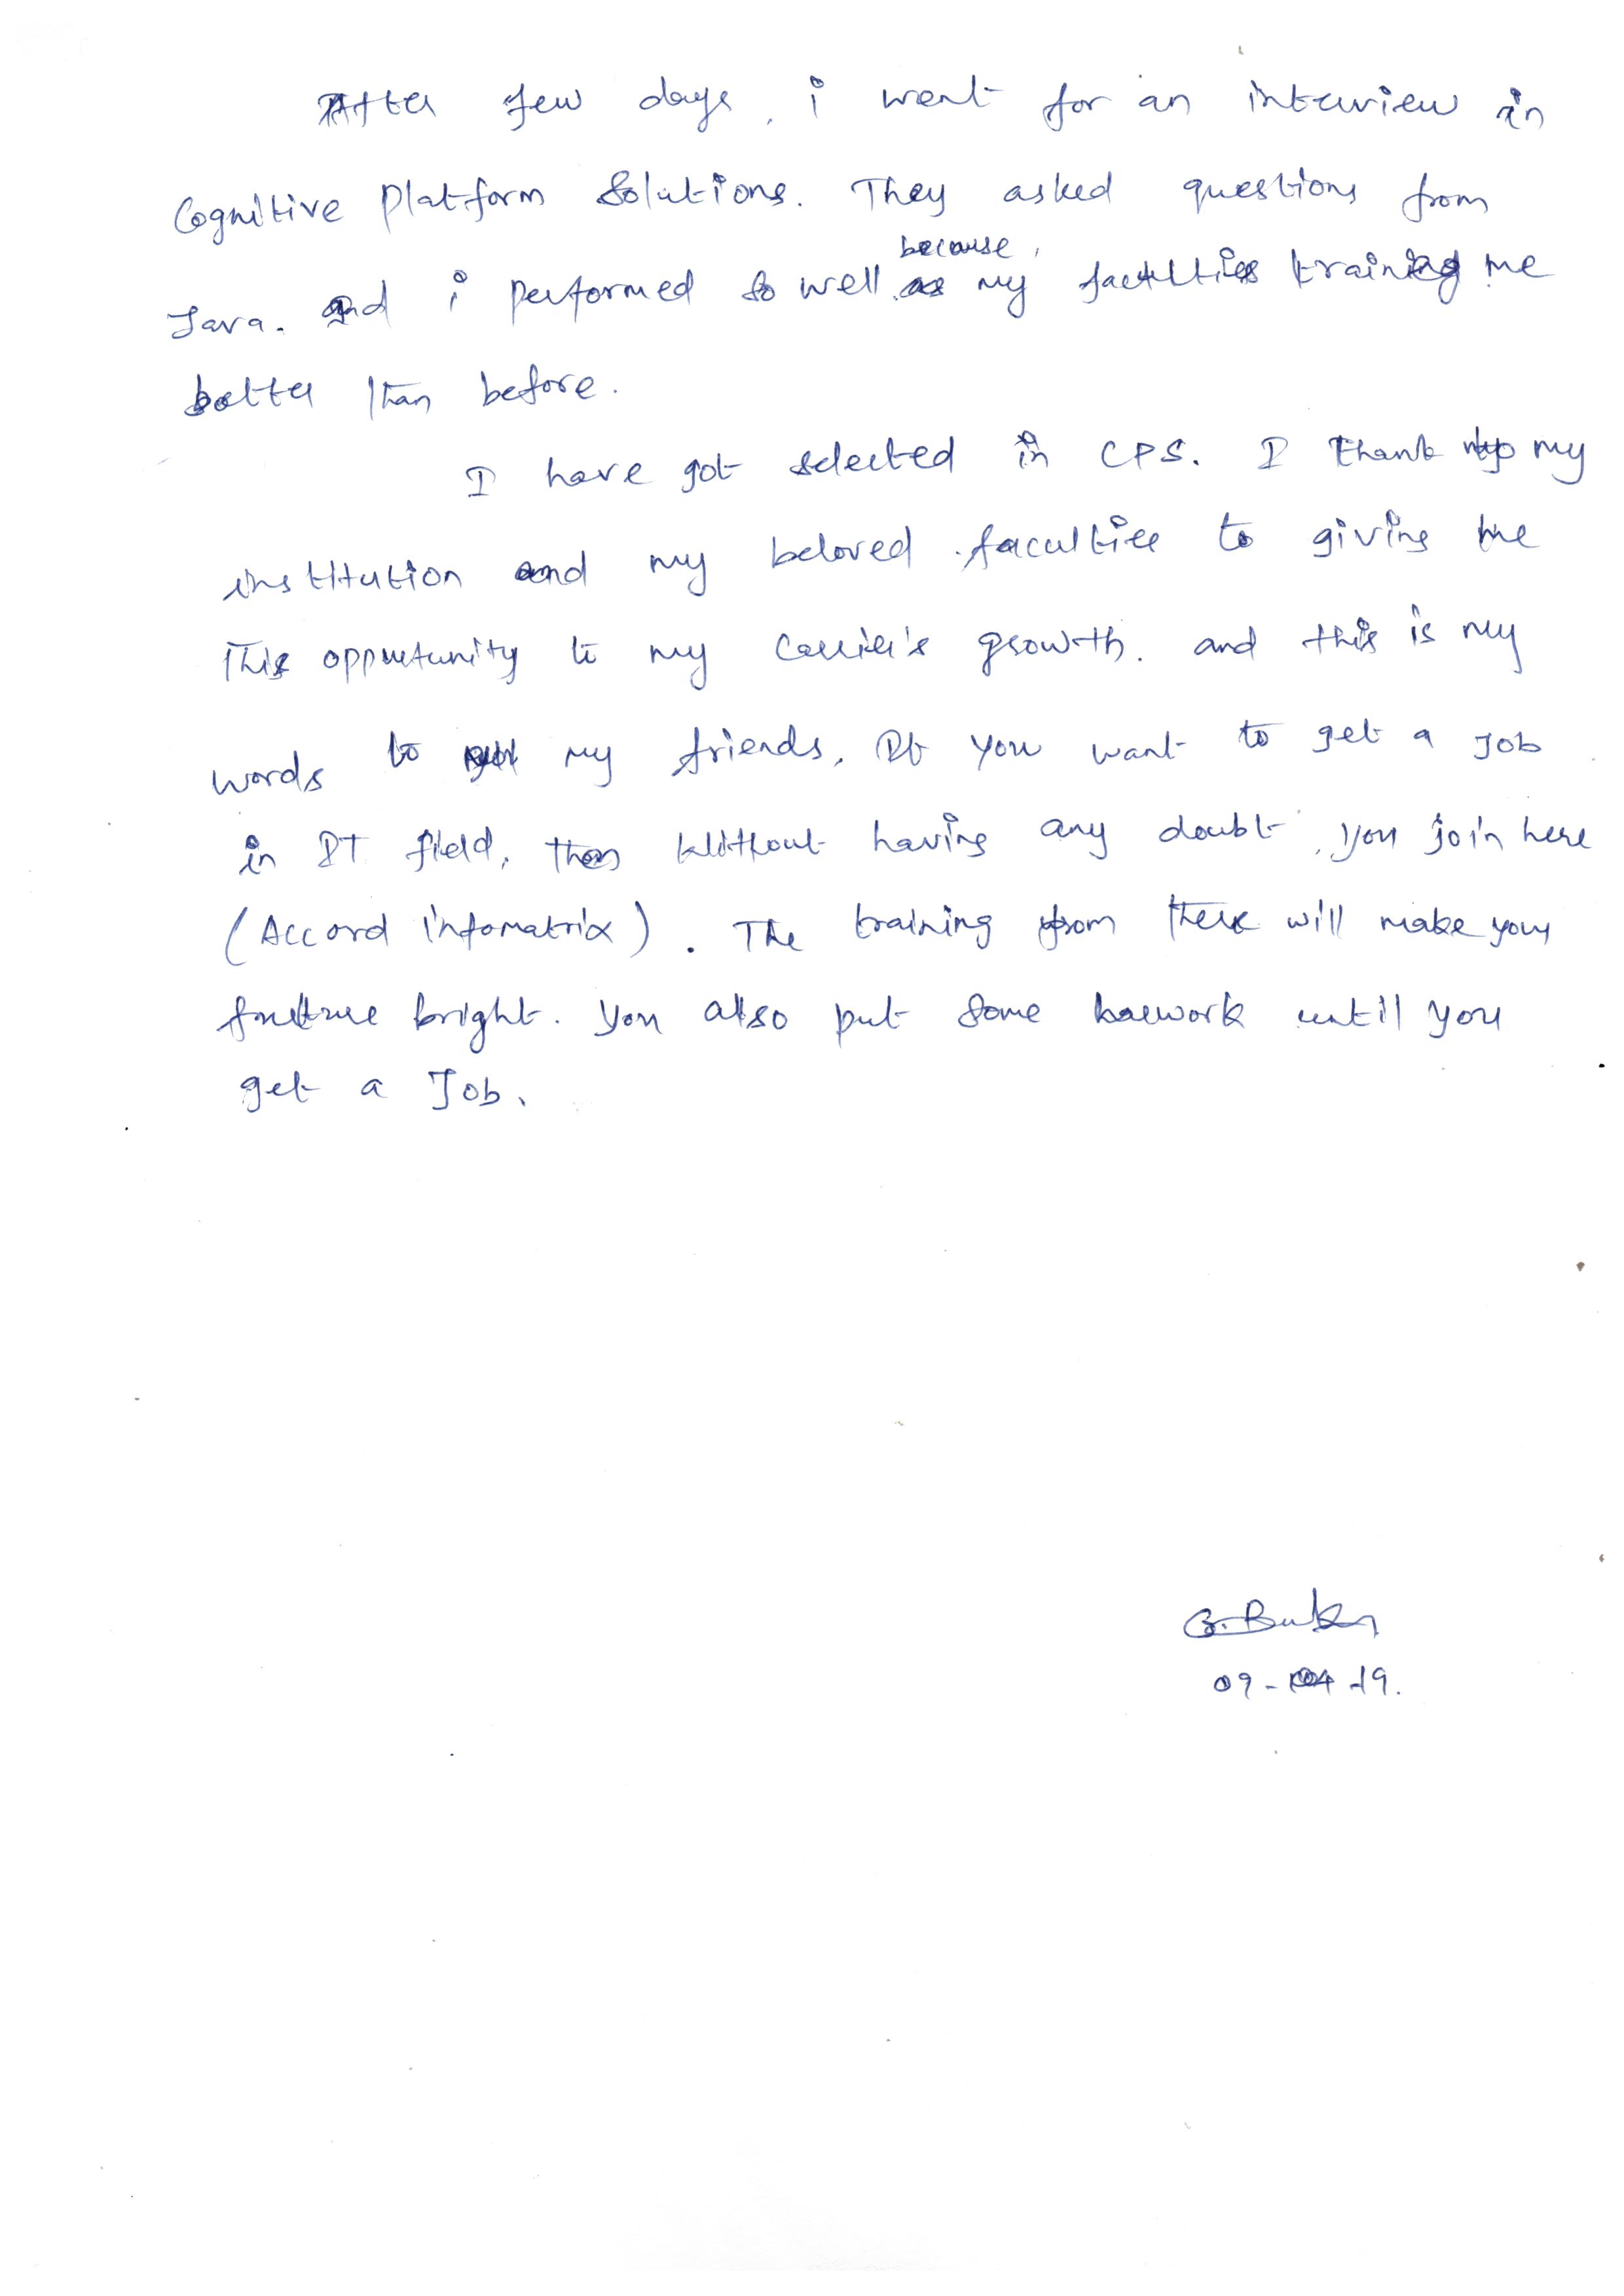 After few days, i went for an interview in
Cognitive Platform Solutions. They asked questions from
because
Java. and i performed so well my faculties training me
better than before.
I have got selected in CPS. I thank my
institution and my beloved faculties to giving me
This opportunity to my carrier's growth. and this is my
words to my friends, If you want to get a job
in IT field, then without having any doubt, you join here
(Accord infomatrix). The training from there will make your
future bright. you also put some work until you
get a Job.
09-04-19.